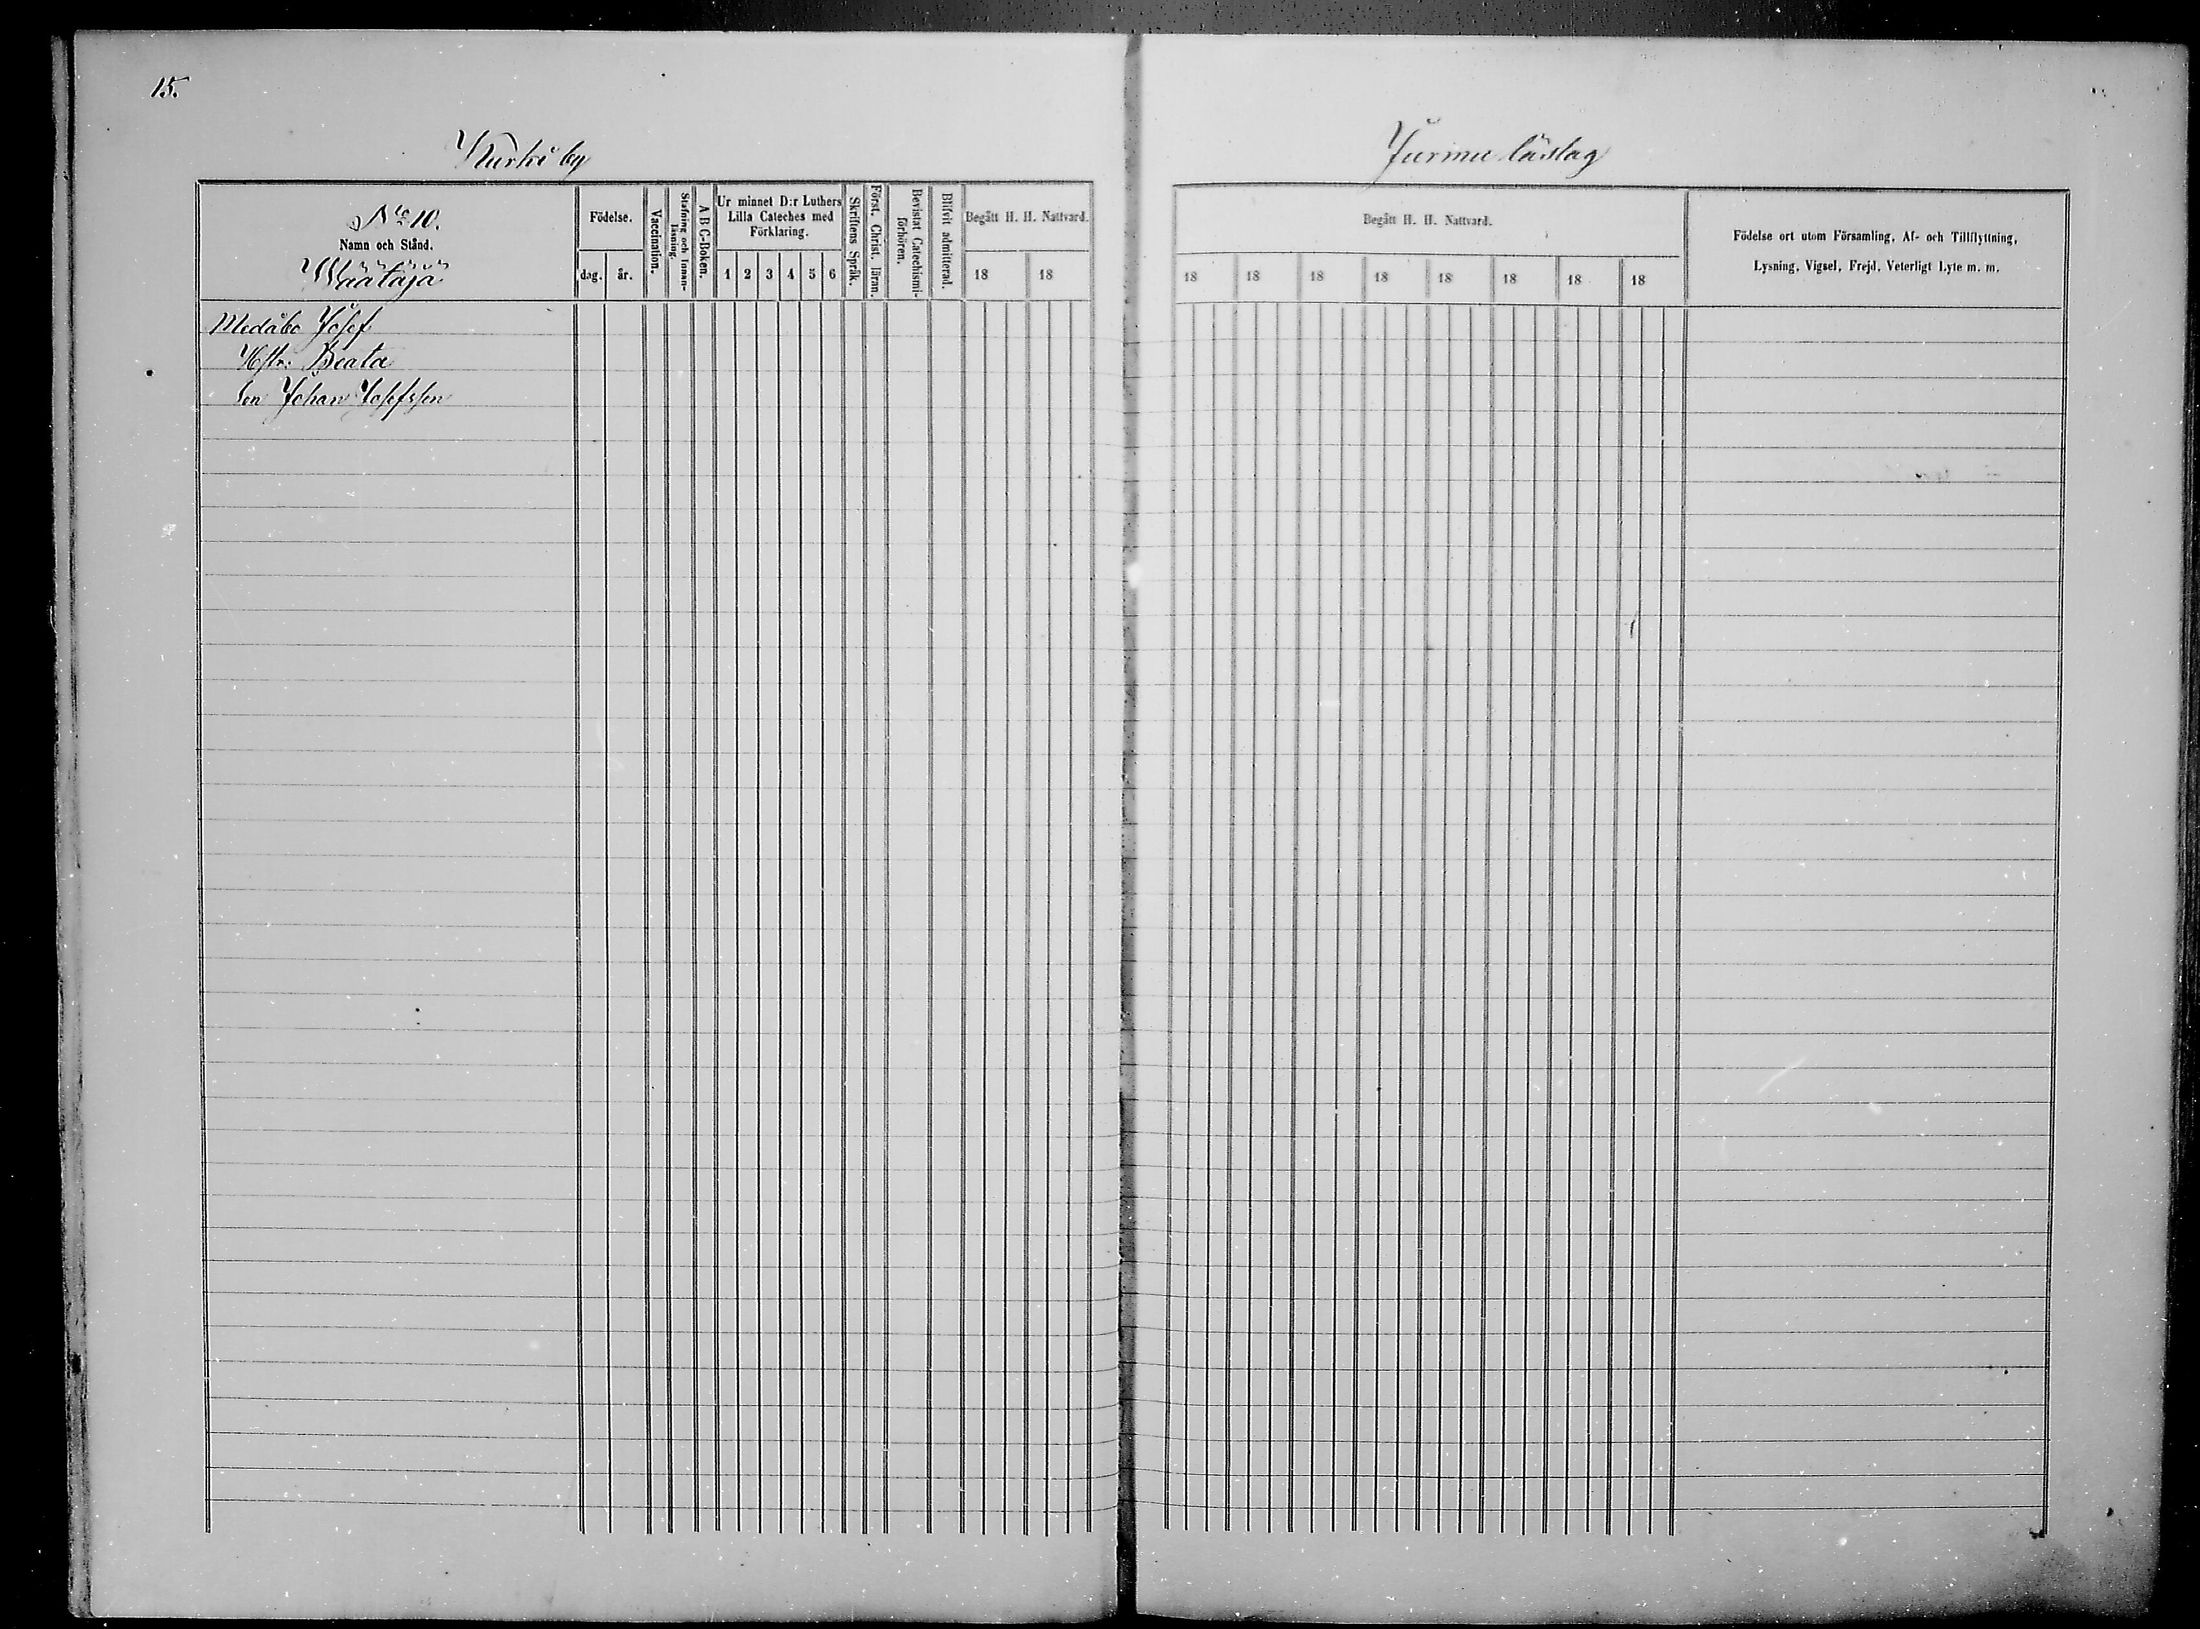 15.
Kurki by
No 10.
Namn och Stånd.
Määtäjä
Födelse.
dag.
år.
Vaccination.
Stafning och Innan-
läsning.
A B C-Boken.
Ur minnet D:r Luthers
Lilla Cateches med
Förklaring.
1 2 3 4 5 6
Skriftens Språk.
Först. Christ. läran.
Bevistat Catechismi-
förhören.
Blifvit admitterad.
Begått H. H. Nattvard.
18 18
Medåbo Josef
Hstr. Beata
Son Johan Josefsson
Jurmu läslag
Begått H. H. Nattvard.
18 18 18 18 18 18 18 18
Födelse ort utom Församling, Af- och Tillflyttning,
Lysning, Vigsel, Frejd, Veterligt Lyte m. m.